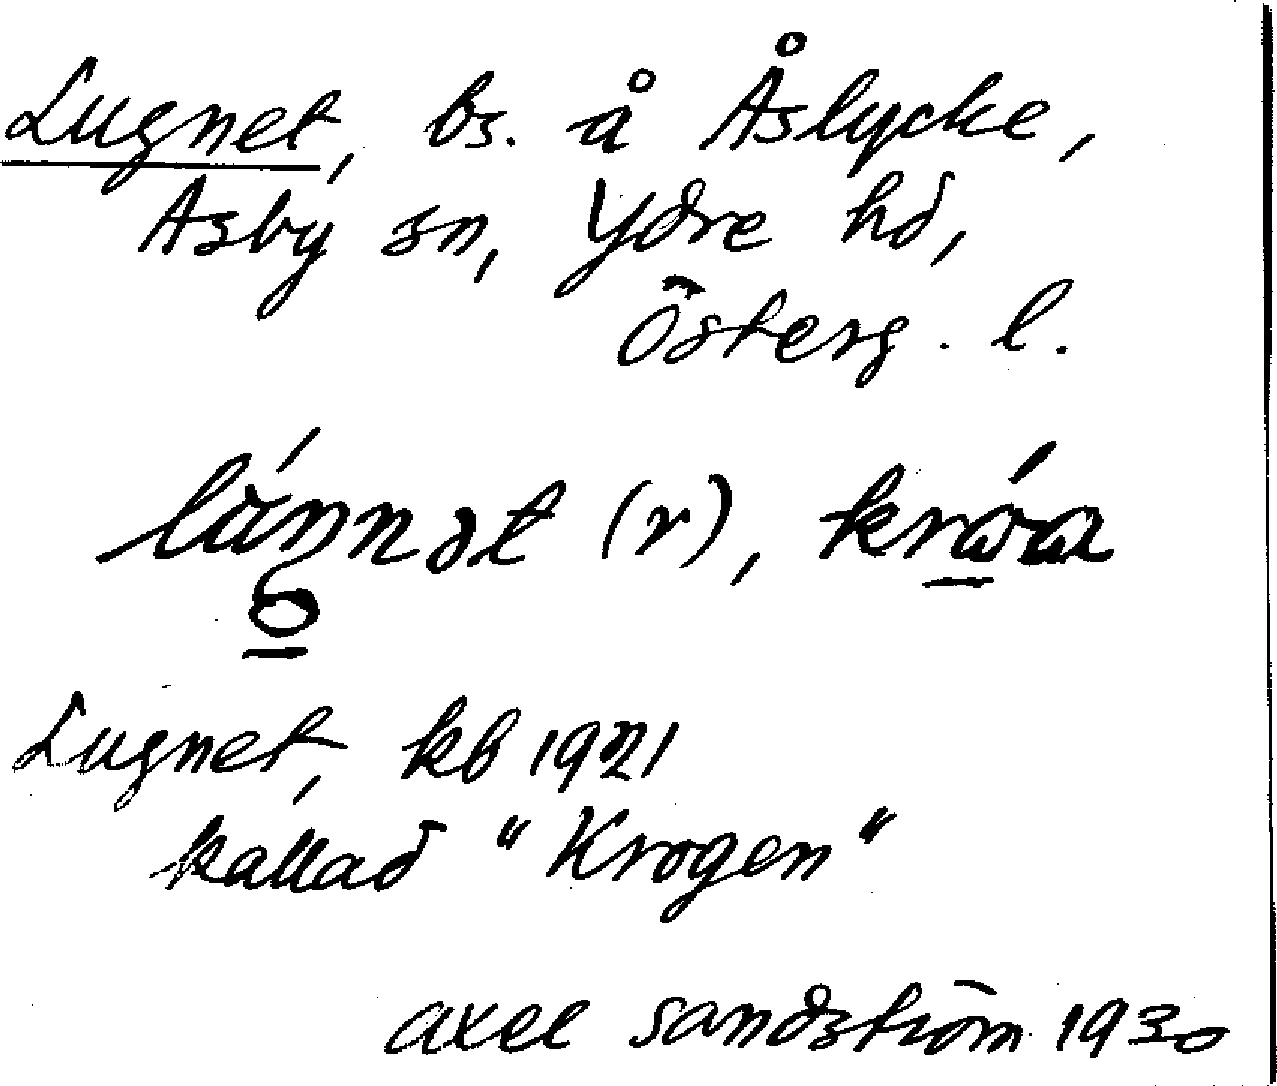 Lugnet, bs. å Åslycke,
Asby sn, Ydre hd,
Österg. l.
(r),
Lugnet, kb 1921
kallad "Krogen"
axel sandström 1930